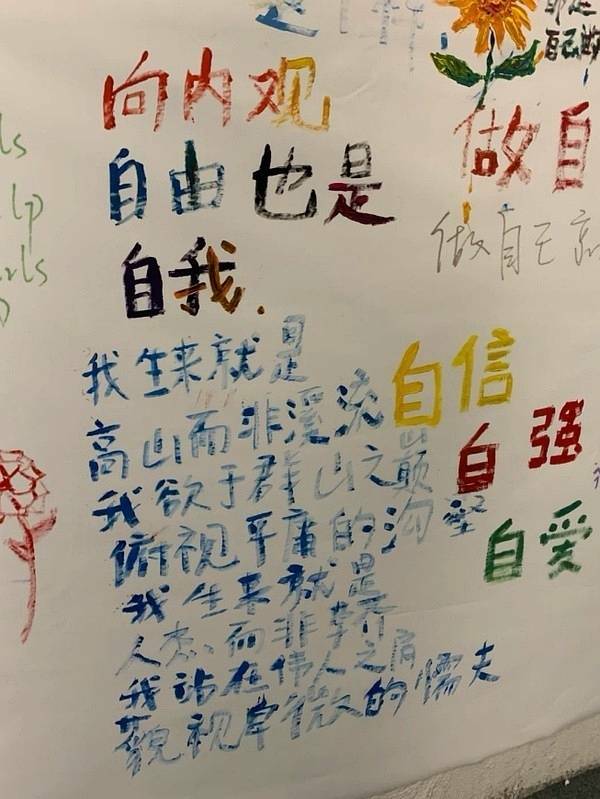 向内观
自由也是
自我.
我生来就是
高山而非溪流
我欲于群山之巅
俯视平庸的沟壑
我生来就是
人杰而非草芥
我站在伟人之肩
藐视卑微的懦夫
自己的
做自
做自己
自信
自强
自爱
ls
lp
rls